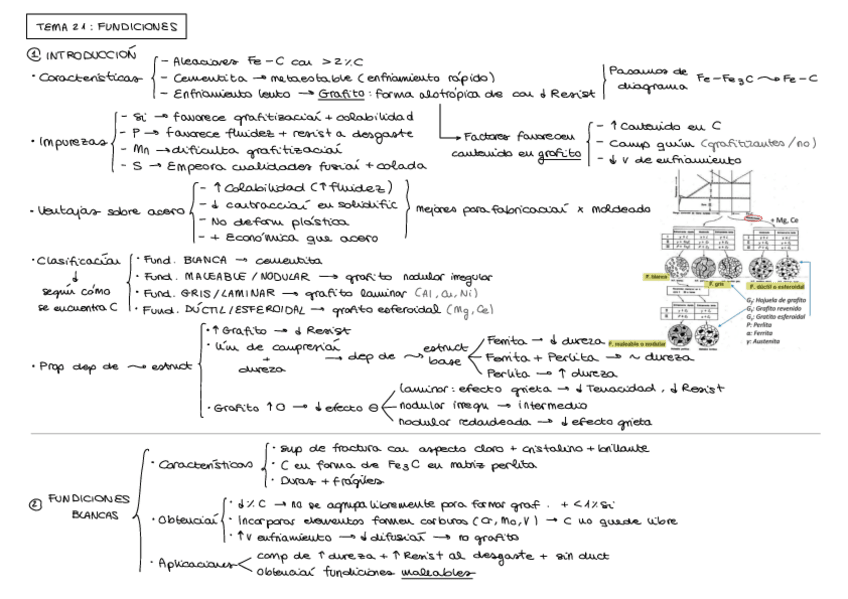 TEMA 21: FUNDICIONES
① INTRODUCCIÓN
· Características
- Aleaciones Fe-C con > 2% C
- Cementita → metaestable (enfriamiento rápido)
- Enfriamiento lento → Grafito: forma alotrópica de C con ↓ Resist
Pasamos de diagrama Fe-Fe3C → Fe-C
· Impurezas
- Si → favorece grafitización + colabilidad
- P → favorece fluidez + resist a desgaste
- Mn → dificulta grafitización
- S → Empeora cualidades fusión + colada
→ Factores favorecen contenido en grafito
- ↑ Contenido en C
- Comp quím (grafitizantes/no)
- ↓ v de enfriamiento
· Ventajas sobre acero
- ↑ Colabilidad (↑ fluidez)
- ↓ contracción en solidific
- No deform plástica
- + Económica que acero
mejores para fabricación x moldeado
· Clasificación
↓
según cómo
se encuentra C
· Fund. BLANCA → cementita
· Fund. MALEABLE/NODULAR → grafito nodular irregular
· Fund. GRIS/LAMINAR → grafito laminar (Al, Cu, Ni)
· Fund. DÚCTIL/ESFEROIDAL → grafito esferoidal (Mg, Ce)
+ Mg, Ce
F. blanca
F. gris
F. dúctil o esferoidal
F. maleable o nodular
G₁: Hojuela de grafito
G₂: Grafito revenido
G₃: Gratito esferoidal
P: Perlita
α: Ferrita
γ: Austenita
· Prop dep de → estruct
· ↑ Grafito → ↓ Resist
· Lím de compresión + dureza → dep de → estruct base
Ferrita → ↓ dureza
Ferrita + Perlita → ~ dureza
Perlita → ↑ dureza
· Grafito ↑ O → ↓ efecto ⊖
laminar: efecto grieta → ↓ Tenacidad, ↓ Resist
nodular irregu → intermedio
nodular redondeada → ↓ efecto grieta
② FUNDICIONES BLANCAS
· Características
· Sup de fractura con aspecto claro + cristalino + brillante
· C en forma de Fe3C en matriz perlita
· Duras + frágiles
· Obtención
· ↓% C → no se agrupa libremente para formar graf. + <1% Si
· Incorporar elementos formen carburos (Cr, Mo, V) → C no quede libre
· ↑v enfriamiento → ↓ difusión → no grafito
· Aplicaciones
comp de ↑ dureza + ↑ Resist al desgaste + sin duct
Obtención fundiciones maleables